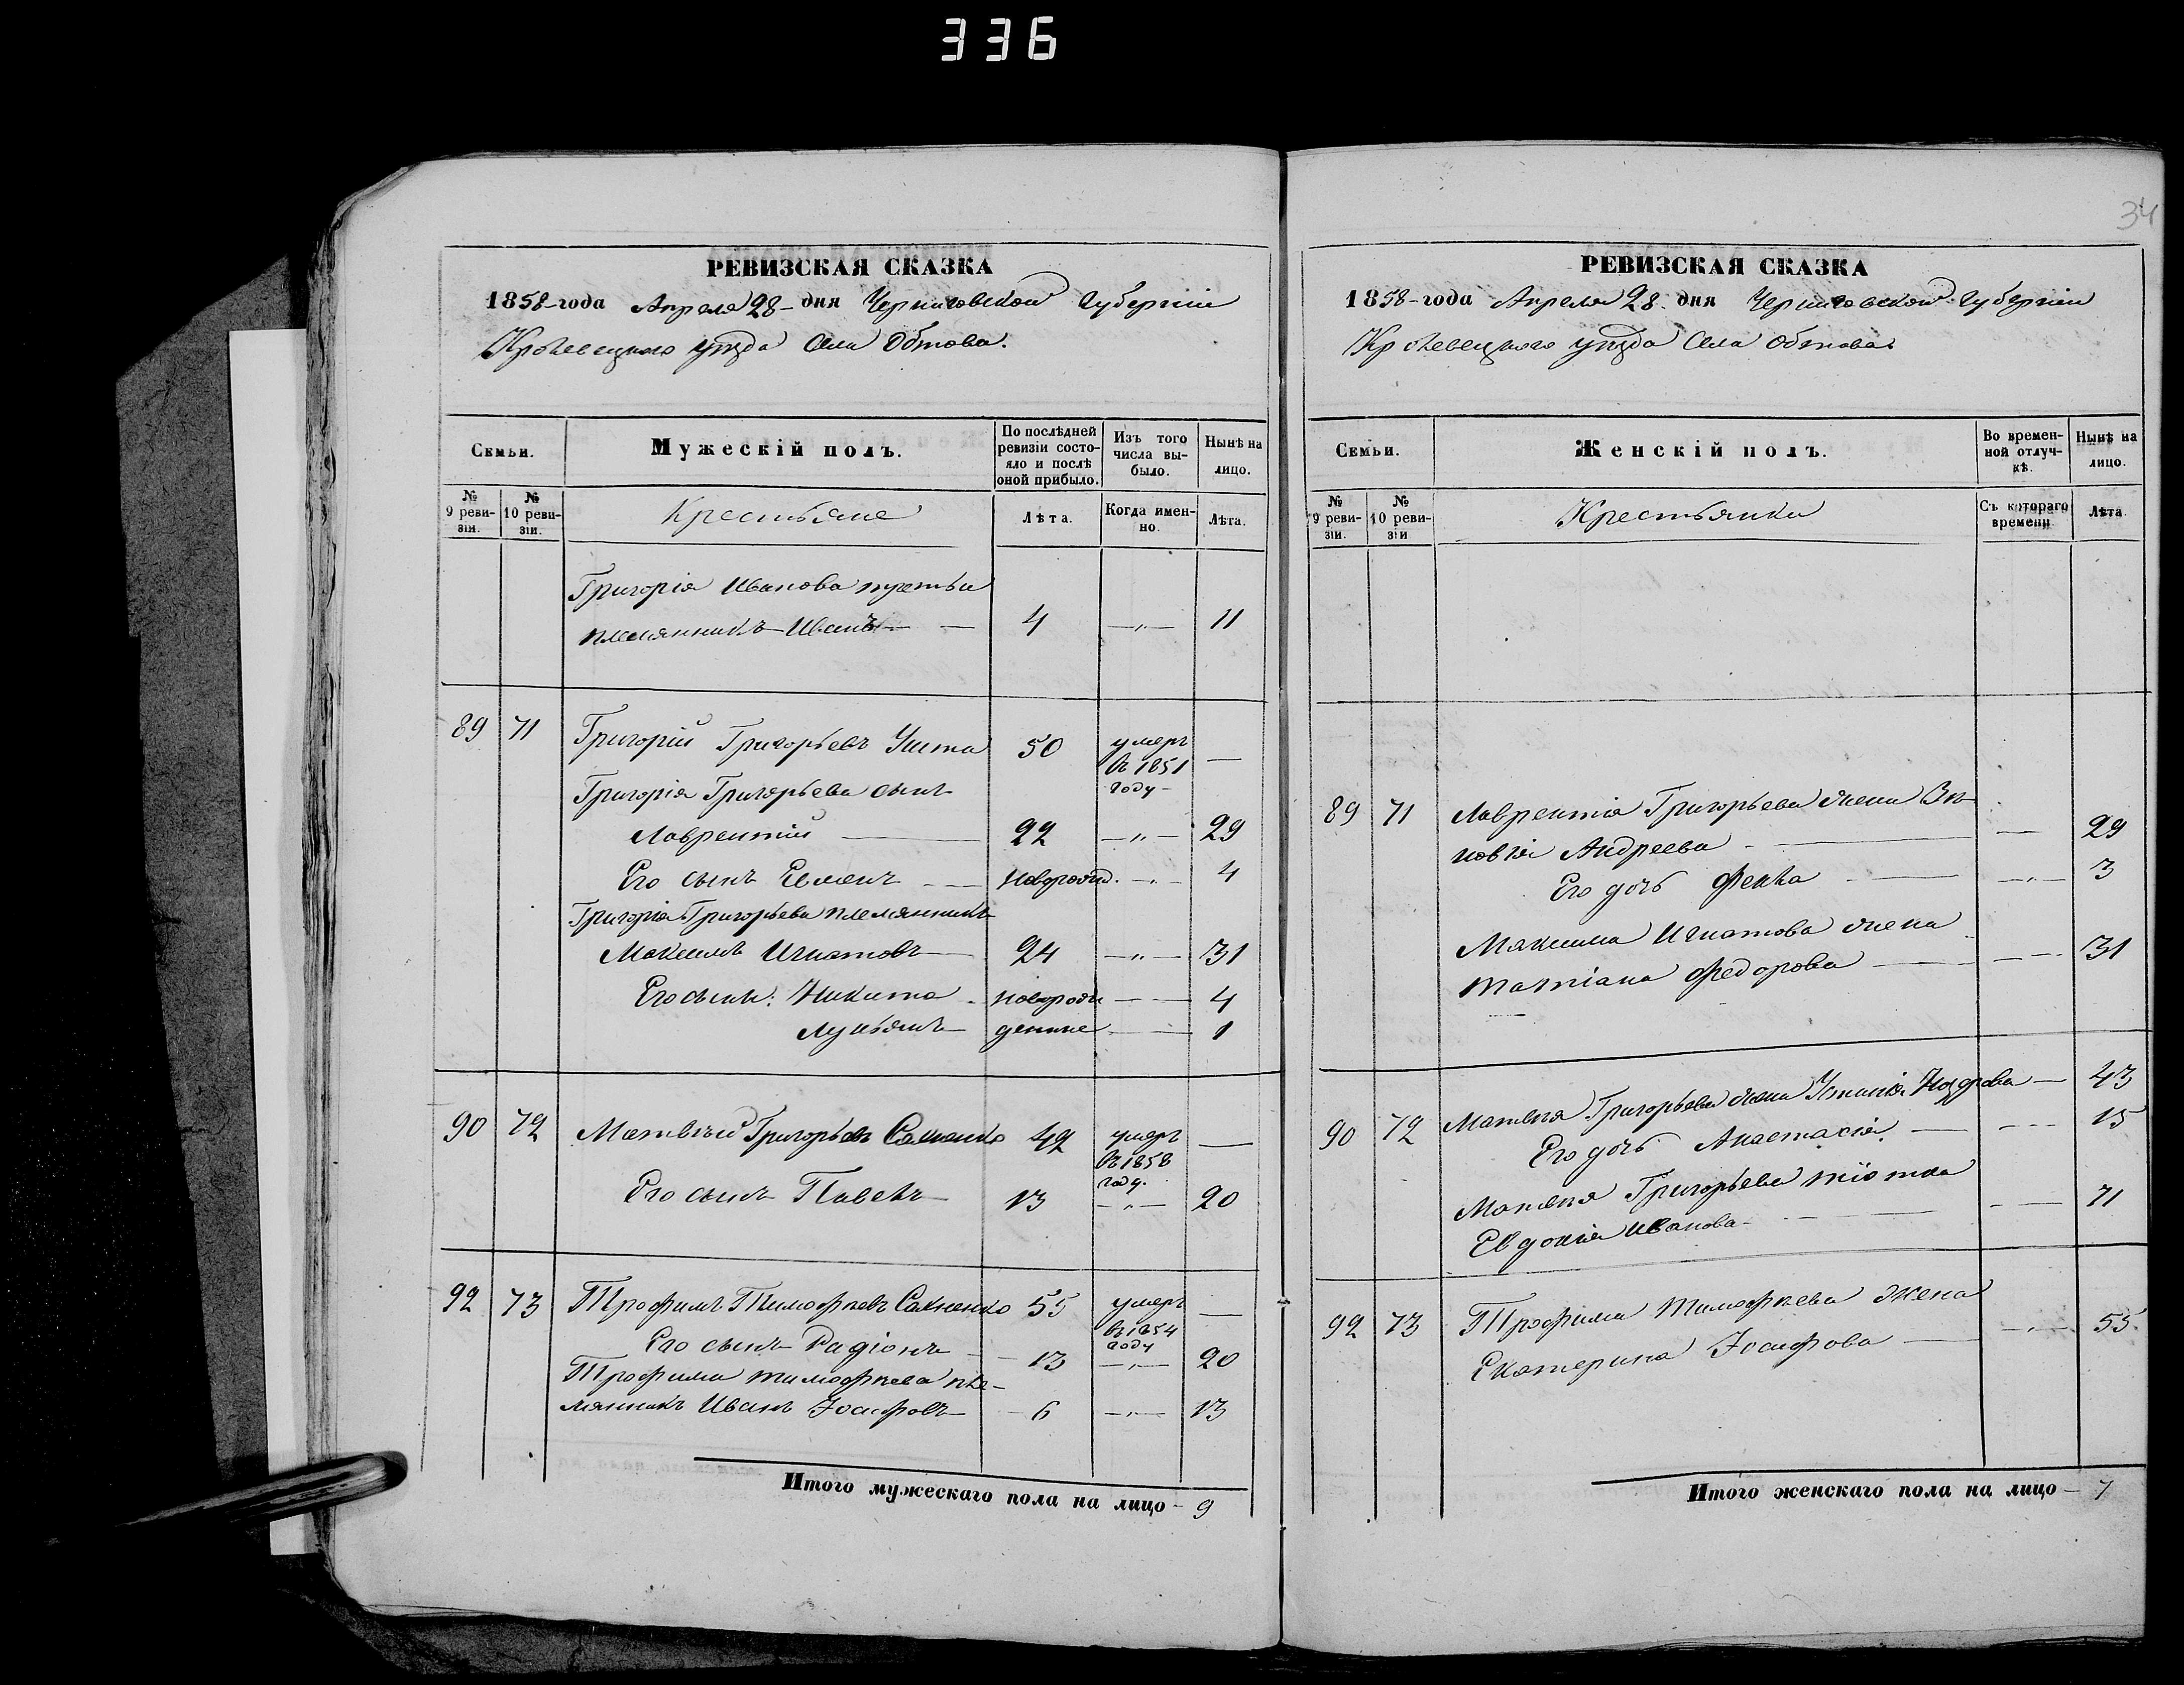 336
34
РЕВИЗСКАЯ СКАЗКА
1858 года Апреля 28 дня Черниговской Губерніи
Кролевецкого уѣзда Села Обтова.
Семьи.
Мужескій полъ.
По послѣдней ревизіи состояло и послѣ оной прибыло.
Изъ того числа выбыло.
Нынѣ на лицо.
№ 9 ревизіи.
№ 10 ревизіи.
Крестьяне
Лѣта.
Когда именно.
Лѣта.
Григорія Иванова третьи
племянникъ Иванъ — 4 —"— 11
89 71 Григорій Григорьевъ Ушта 50 умеръ въ 1851 году —
Григорія Григорьева сынъ
Лаврентій — 22 —"— 29
Его сынъ Евменъ — новорожд. —"— 4
Григорія Григорьева племянникъ
Максимъ Игнатовъ — 24 —"— 31
Его сын: Никита новорож — 4
Лукьянъ денные — 1
90 72 Матвѣй Григорьевъ 42 умеръ въ 1858 году. —
Его сынъ Павелъ 13 —"— 20
92 73 Трофимъ Тимофѣевъ 55 умеръ въ 1854 году —
Его сынъ Радіонъ — 13 —"— 20
Трофима Тимофѣева пле-
мянникъ Иванъ Іосифовъ — 6 —"— 13
Итого мужескаго пола на лицо — 9
РЕВИЗСКАЯ СКАЗКА
1858 года Апреля 28 дня Черниговской Губерніи
Кролевецкого уѣзда Села Обтова
Семьи.
Женскій полъ.
Во временной отлучкѣ.
Нынѣ на лицо.
№ 9 ревизіи.
№ 10 ревизіи
Крестьянки
Съ котораго времени
Лѣта
89 71 Лаврентія Григорьева жена Зи-
новія Андреева — — 29
Его дочь Фекла — —"— 3
Максима Игнатова жена
Татіана Федорова — — 31
90 72 Матвѣя Григорьева жена — 43
Его дочь Анастасія. — — 15
Матвѣя Григорьева тіотка
Евдокія Иванова — — 71
92 73 Трофима Тимофѣева жена
Екатерина Іосифова — —"— 55.
Итого женскаго пола на лицо — 7